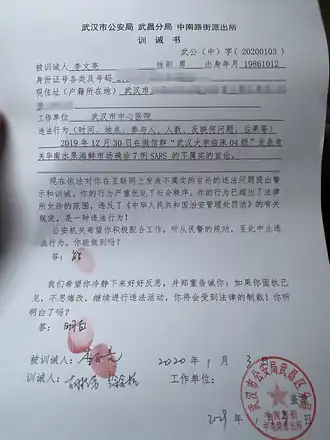 武汉市公安局 武昌分局 中南路街派出所
训诫书
武公(中)字(20200103)
被训诫人 李文亮 性别 男 出身年月 19861012
身份证号各类及号码
现住址(户籍所在地) 武汉市
工作单位 武汉市中心医院
违法行为(时间、地点、参与人、人数、反映何问题、后果等)
2019年12月30日在微信群“武汉大学临床04级”发表有
关华南水果海鲜市场确诊7例SARS的不属实的言论。
现在依法对你在互联网上发表不属实的言论的违法问题提出警
示和训诫。你的行为严重扰乱了社会秩序。你的行为已超出了法律
所允许的范围,违反了《中华人民共和国治安管理处罚法》的有关
规定,是一种违法行为!
公安机关希望你积极配合工作,听从民警的规劝,至此中止违
法行为。你能做到吗?
答:能
我们希望你冷静下来好好反思,并郑重告诫你:如果你固执己
见,不思悔改,继续进行违法活动,你将会受到法律的制裁!你听
明白了吗?
答:明白
被训诫人:李文亮 2020年1月3日
训诫人: 工作单位:
武汉市公安局武昌区分局
中南路街派出所